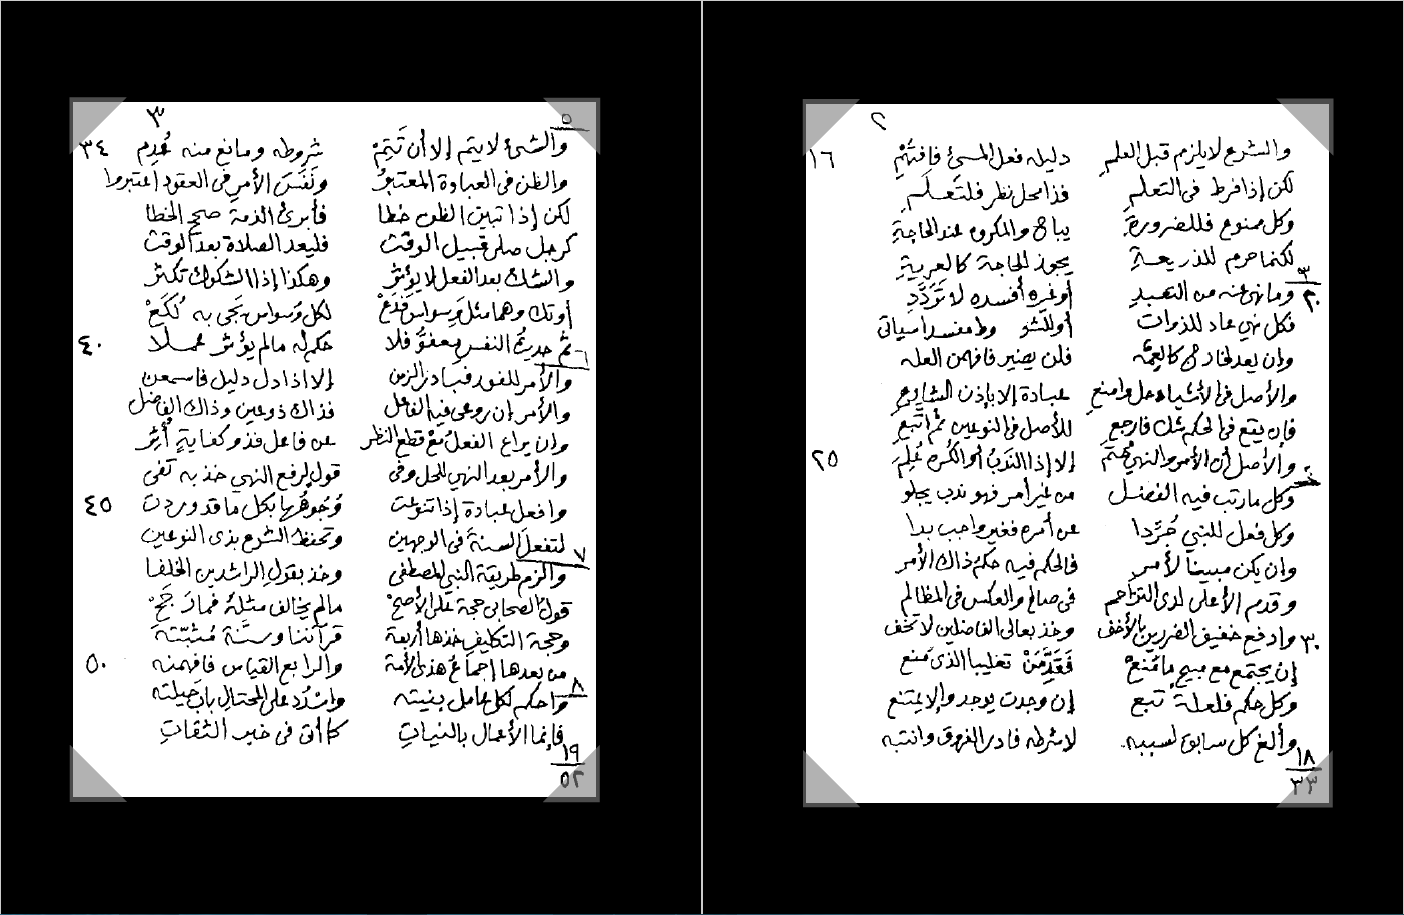 ٢
١٦ والشرع لا يلزم قبل العلم دليله فعل المسيء فافتهم
لكن إذا فرط في التعلم فذا محل نظر فلتعلم
وكل ممنوع فللضرورة يباح والمكروه عند الحاجة
لكنما حرم للذريعة يجوز للحاجة كالعرية
٣
٢٠ وما نهي عنه من التعبد أو غيره أفسده لا تردد
فكل نهي عاد للذوات أو للشروط مفسدا سياتي
وإن يعد لخارج كالعمه فلن يضير فافهمن العله
والأصل في الأشياء حل وامنع عبادة إلا بإذن الشارع
فإن يقع في الحكم شك فارجع للأصل في النوعين ثم اتبع
٤
٢٥ والأصل أن الأمر والنهي حتم إلا إذا الندب أو الكره علم
وكل ما رتب فيه الفضل من غير أمر فهو ندب يجلو
وكل فعل للنبي جردا عن أمره فغير واجب بدا
وإن يكن مبينا لأمر فالحكم فيه حكم ذاك الأمر
وقدم الأعلى لدى التزاحم في صالح والعكس في المظالم
٣٠ وادفع خفيف الضررين بالأخف وخذ بعالي الفاضلين لا تخف
إن يجتمع مع مبيح ما منع فقدمن تغليبا الذي منع
وكل حكم فلعلة تبع إن وجدت يوجد وإلا يمتنع
وألغ كل سابق لسببه لا شرطه فادر الفروق وانتبه
١٨
٣٣
٣
٥
٣٤ والشيء لا يتم إلا أن تتم شروطه ومانع منه عدم
والظن في العبادة المعتبر ونفس الأمر في العقود اعتبروا
لكن إذا تبين الظن خطا فأبرئ الذمة صحح الخطا
كرجل صلى قبيل الوقت فليعد الصلاة بعد الوقت
والشك بعد الفعل لا يؤثر وهكذا إذا الشكوك تكثر
أو تك وهما مثل وسواس فدع لكل وسواس يجي به لكع
٦
٤٠ ثم حديث النفس معفو فلا حكم له مالم يؤثر عملا
والأمر للفور فبادر الزمن إلا اذا دل دليل فاسمعن
والأمر إن روعي فيه الفاعل فذاك ذو عين وذاك الفاضل
وان يراع الفعل مع قطع النظر عن فاعل فذو كفاية أثر
والأمر بعد النهي للحل وفي قول لرفع النهي خذ به تفي
٤٥ وافعل عبادة إذا تنوعت وجوهها بكل ما قد وردت
لتفعل السنة في الوجهين وتحفظ الشرع بذي النوعين
٧
والزم طريقة النبي المصطفى وخذ بقول الراشدين الخلفا
قول الصحابي حجة على الأصح مالم يخالف مثله فما رجح
وحجة التكليف خذها أربعة قرآننا وسنة مثبتة
٥٠ من بعدها إجماع هذي الأمة والرابع القياس فافهمنه
٨
واحكم لكل عامل بنيته واسدد على المحتال باب حيلته
فإنما الأعمال بالنيات كما أتى في خبر الثقات
١٩
٥٢